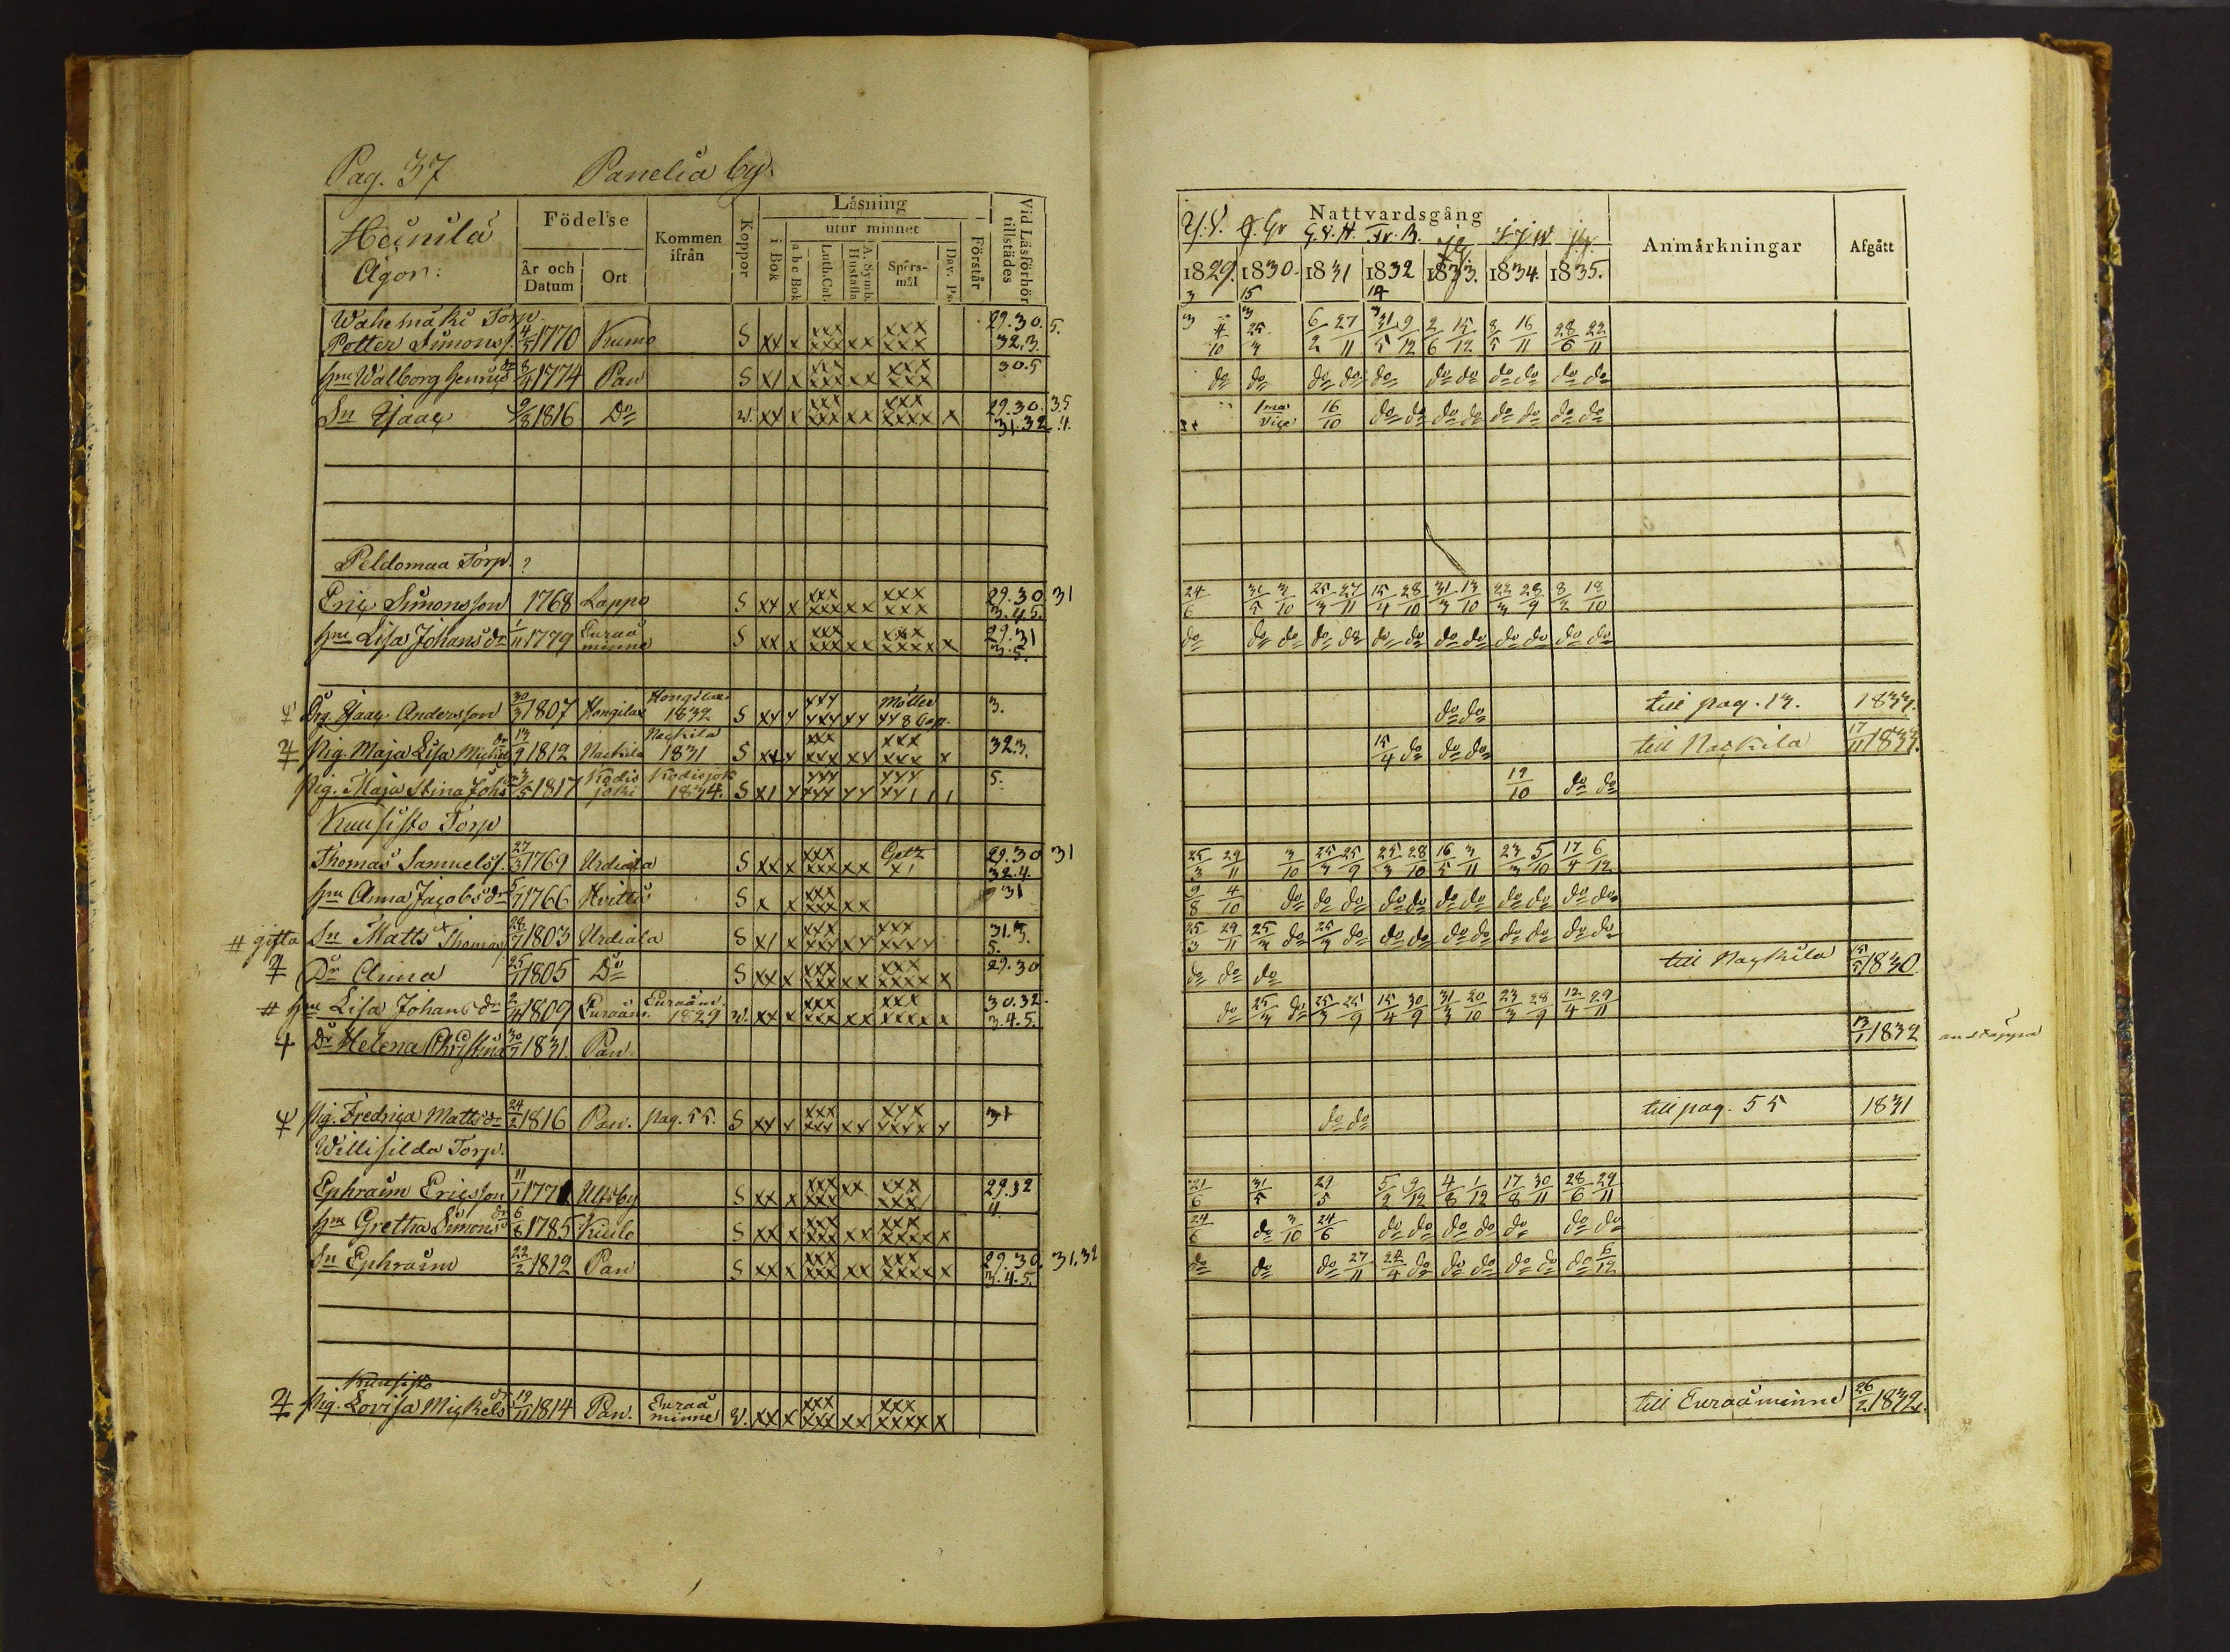 Pag. 37 Panelia by.
Heinilä
Ägor:
Födelse
År och Datum
Ort
Kommen ifrån
Koppor
Läsning
utur minnet
i Bok
a b c Bok
Luth. Cat.
A. Symb. Hustafla
Spörsmål
Dav. Ps.
Förstår
Vid Läsförhör tillstädes
Wahemäki Torp
Petter Simonss. 4/5 1770 Kumo S xx x xxx xxx xx xxx xxx 29.30. 5. 32.3.
hm Walborg Henrics dr 8/4 1774 Pan S x1 x xxx xxx xx xxx xxx 30.5
Sn Isaac 9/8 1816 Do v. xx x xxx xxx xx xxx xxxx x 29.30. 35 31.32 4.
Peldomaa Torp. ?
Eric Simonsson 1768 Lappo S xx x xxx xxx xx xxx xxx 29.30 31 3.4.5.
hm Lisa Johans dr 1/11 1779 Euraå minne S xx x xxx xxx xx xxx xxxx x 29.31 3.5.
Drg. Isaac Andersson 30/3 1807 Hongilax Hongilax 1832 S xx x xxx xxx xx 3.
Pig. Maja Lisa Michels dr 13/9 1812 Nackila Nackila 1831 S xxx x xxx xxx xx xxx xxx x 32.3.
Pig. Maja Stina Johs dr 3/5 1817 Kodisjoki Kodisjok 1834. S x1 x xxx xxx xx xxx 5.
Kuusisto Torp
Thomas Samuelss. 27/3 1769 Urdiala S xx x xxx xxx xx x1 29.30 31 32.4.
hm Anna Jacobs dr 5/7 1766 Hvittis S x x xxx xxx xx 31
# gifta Sn Matts Thomass 28/7 1803 Urdiala S x1 x xxx xxx xx xxx xxxx 31.3. 5.
Dr Anna 25/11 1805 Do S xx x xxx xxx xx xxx xxxx x 29.30
# hm Lisa Johans dr 2/4 1809 Euraåm. Euraåm. 1829 v. xx x xxx xxx xx xxx xxxx x 30.32. 3.4.5.
Dr Helena Christina 30/7 1831 Pan
Pig. Fredrica Matts dr 24/2 1816 Pan. pag. 55. S xx x xxx xxx xx xxx xxxx x 31
Willisilda Torp.
Ephraim Ericsson 11/1 1771 Ulfsby S xx x xxx xxx xx xxx xxx 29.32 4.
hm Gretha Simons dr 6/8 1785 Kiulo S xx x xxx xxx xx xxx xxxx x
Sn Ephraim 22/2 1812 Pan S xx x xxx xxx xx xxx xxxx x 29.30. 31.32 3.4.5.
Kuusisto
Pig. Lovisa Mickels dr 19/11 1814 Pan. Euraå minne v. xx x xxx xxx xx xxx xxxx x
Nattvardsgång
Anmärkningar
Afgått
1829. 1830. 1831 1832 1833. 1834. 1835.
4/10 25/4 6/2 27/11 9/12 2/6 15/12 8/5 16/11 28/6 22/11
do do do do do do do do do do do
1ma vice 16/10 do do do do do do do do
24/6 31/5 3/10 25/3 27/11 15/4 28/10 31/3 13/10 22/3 28/9 8/2 18/10
do do do do do do do do do do do do do
do do till pag. 13. 1833.
15/4 do do do till Nackila 17/11
19/10 do do
25/3 29/11 3/10 25/3 25/9 25/3 28/10 16/5 3/11 23/3 5/10 17/4 6/12
9/8 4/10 do do do do do do do do do do do
25/3 29/11 25/3 do 25/3 do do do do do do do do do
do do do till Nackila 1830
do 25/3 do 25/3 25/9 15/4 30/9 31/3 20/10 23/3 28/9 12/4 29/11
13/1 1832
do do till pag. 55 1831
21/6 31/5 29/5 5/2 9/12 4/8 1/12 17/8 30/11 28/6 29/11
24/6 do 3/10 24/6 do do do do do do do
do do do 27/11 22/4 do do do do do do 6/12
till Euraåminne 26/2